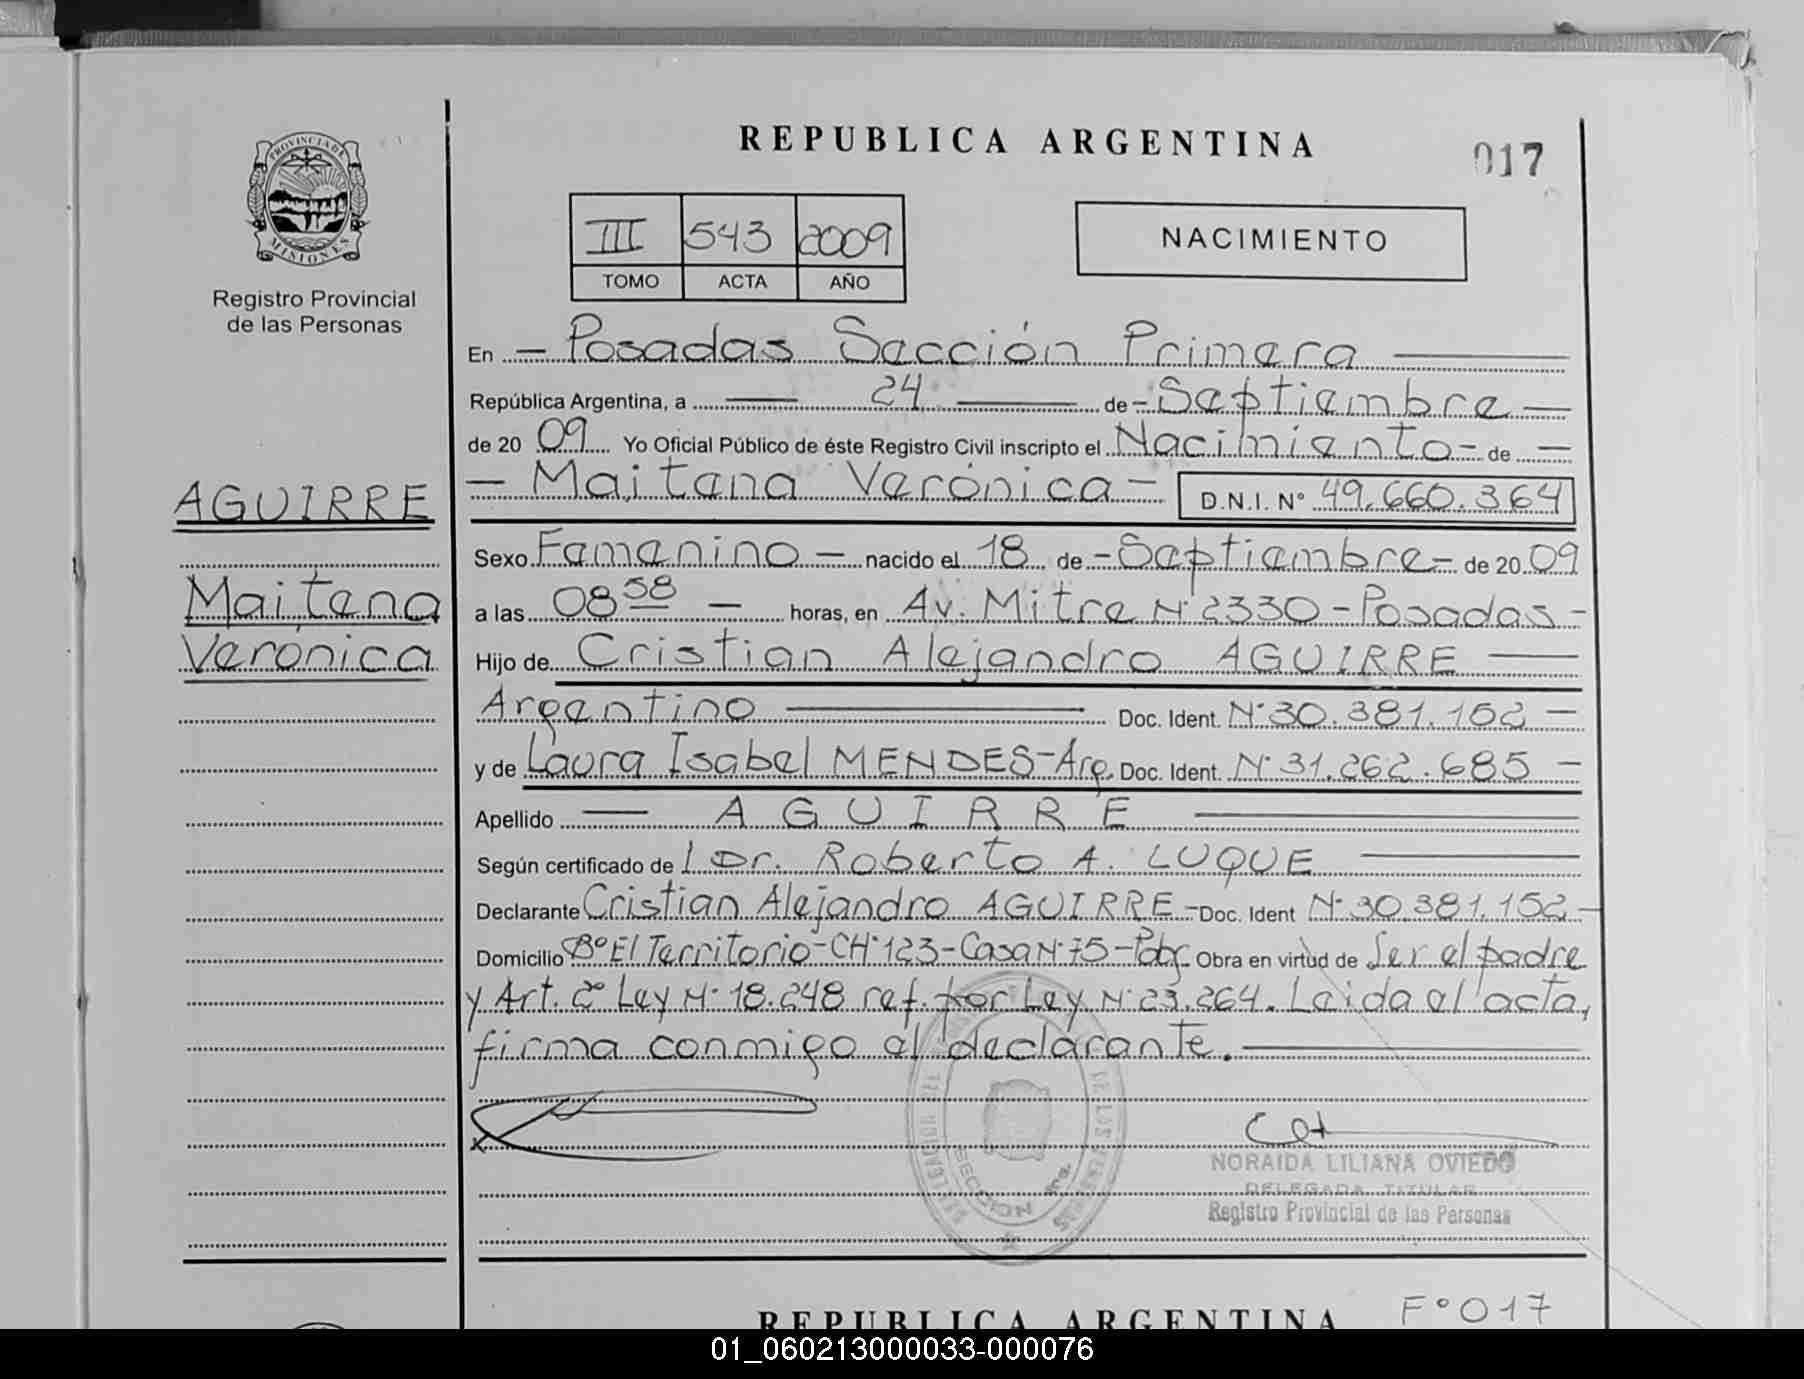 REPUBLICA ARGENTINA
017
PROVINCIA DE
MISIONES
Registro Provincial
de las Personas
III 543 2009
TOMO ACTA AÑO
NACIMIENTO
En — Posadas Sección Primera —
República Argentina, a — 24 — de - Septiembre —
de 20 09 Yo Oficial Público de éste Registro Civil inscripto el Nacimiento - de —
— Maitena Verónica — D.N.I. N° 49.660.364
AGUIRRE
Maitena
Verónica
Sexo Femenino — nacido el 18 de - Septiembre - de 20 09
a las 08 58 — horas, en Av. Mitre N° 2330 - Posadas -
Hijo de Cristian Alejandro AGUIRRE —
Argentino — Doc. Ident. N° 30.381.152 —
y de Laura Isabel MENDES - Arg. Doc. Ident. N° 31.262.685 —
Apellido — AGUIRRE —
Según certificado de l Dr. Roberto A. LUQUE —
Declarante Cristian Alejandro AGUIRRE - Doc. Ident N° 30.381.152 -
Domicilio B° El Territorio - CH° 123 - Casa N° 75 - Pdas. Obra en virtud de Ser el padre
y Art. 2° Ley N° 18.248 ref. por Ley N° 23.264. Leida el acta,
firma conmigo el declarante. —
NORAIDA LILIANA OVIEDO
DELEGADA TITULAR
Registro Provincial de las Personas
DE LAS PERSONAS
SECCION 1ra.
REPUBLICA ARGENTINA
F° 017
01_060213000033-000076